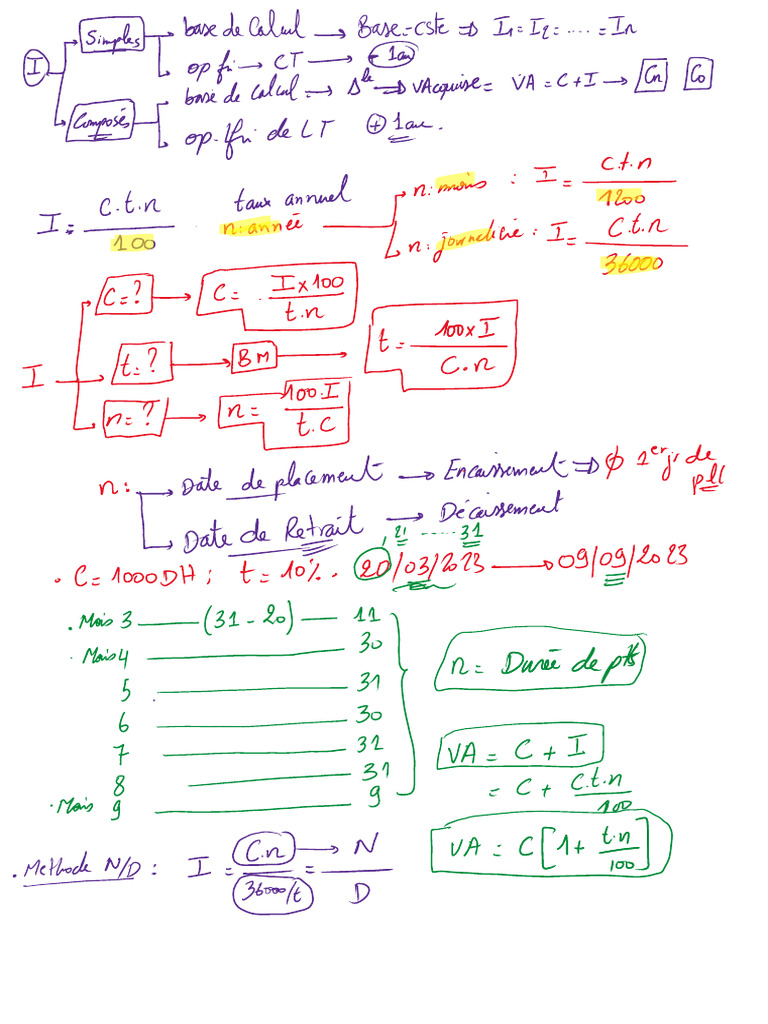 I
Simples
base de Calcul → Base = cste ⇒ I₁ = I₂ = .... = In
op fi → CT → - 1an
Composés
base de Calcul → Δble ⇒ VAcquise = VA = C + I → Cn C0
op. fi de LT ⊕ 1an.
I = C.t.n / 100
taux annuel
n: année
n: mois : I = C.t.n / 1200
n: journalière : I = C.t.n / 36000
I
C = ? → C = I x 100 / t.n
t = ? → BM → t = 100 x I / C.n
n = ? → n = 100.I / t.C
n: Date de placement → Encaissement ⇒ ∅ 1er j. de plt
Date de Retrait → Décaissement
21 ..... 31
. C = 1000DH ; t = 10%. 20/03/2023 → 09/09/2023
. Mois 3 — (31 - 20) — 11
. Mois 4 — 30
5 — 31
6 — 30
7 — 31
8 — 31
. Mois 9 — 9
n = Durée de pts
VA = C + I
= C + C.t.n / 100
VA = C [1 + t.n / 100]
. Methode N/D : I = C.n / 36000/t = N / D